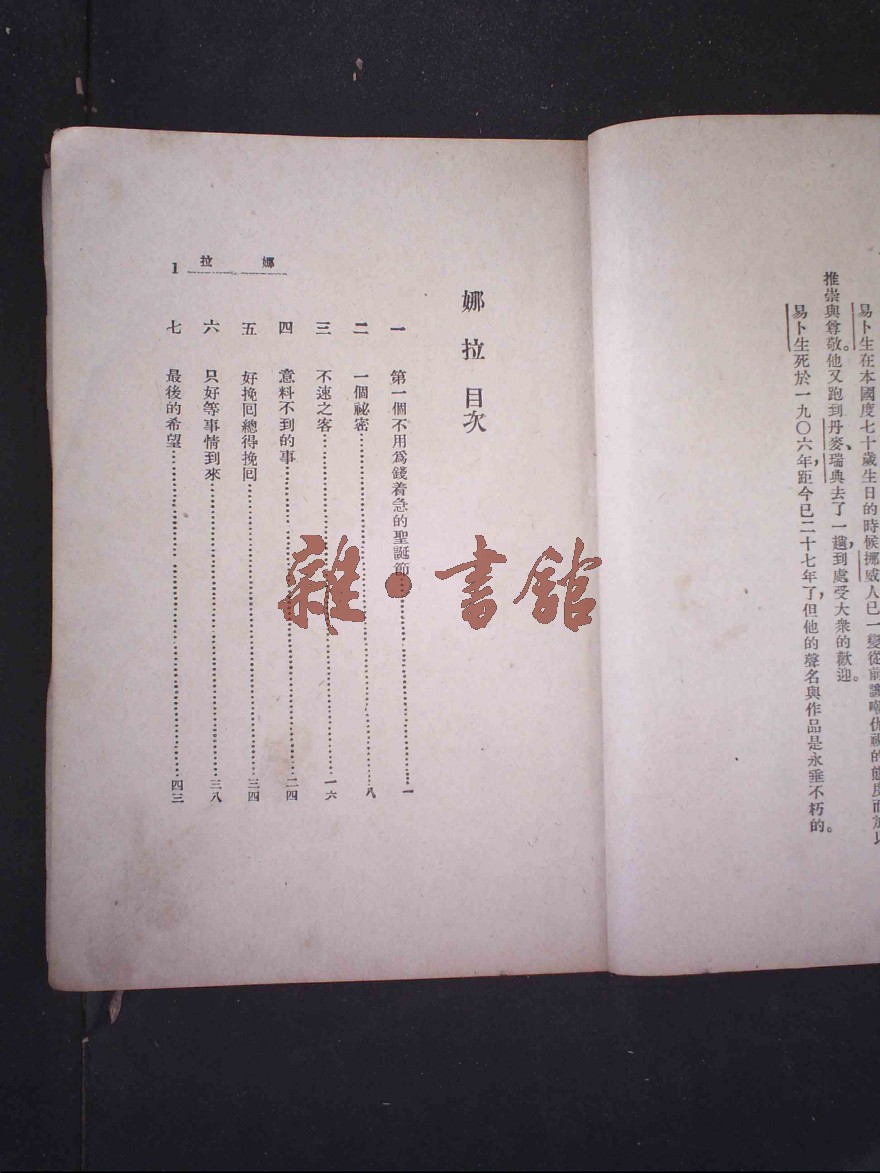 易卜生在本國度七十歲生日的時候，挪威人已一變從前譏嘲仇視的態度而加以
推崇與尊敬。他又跑到丹麥、瑞典去了一趟，到處受大衆的歡迎。
易卜生死於一九〇六年，距今已二十七年了，但他的聲名與作品是永垂不朽的。
娜拉 目次
一 第一個不用爲錢着急的聖誕節……一
二 一個祕密……八
三 不速之客……一六
四 意料不到的事……二四
五 好挽回總得挽回……三四
六 只好等事情到來……三八
七 最後的希望……四三
娜 拉
1
雜·書館